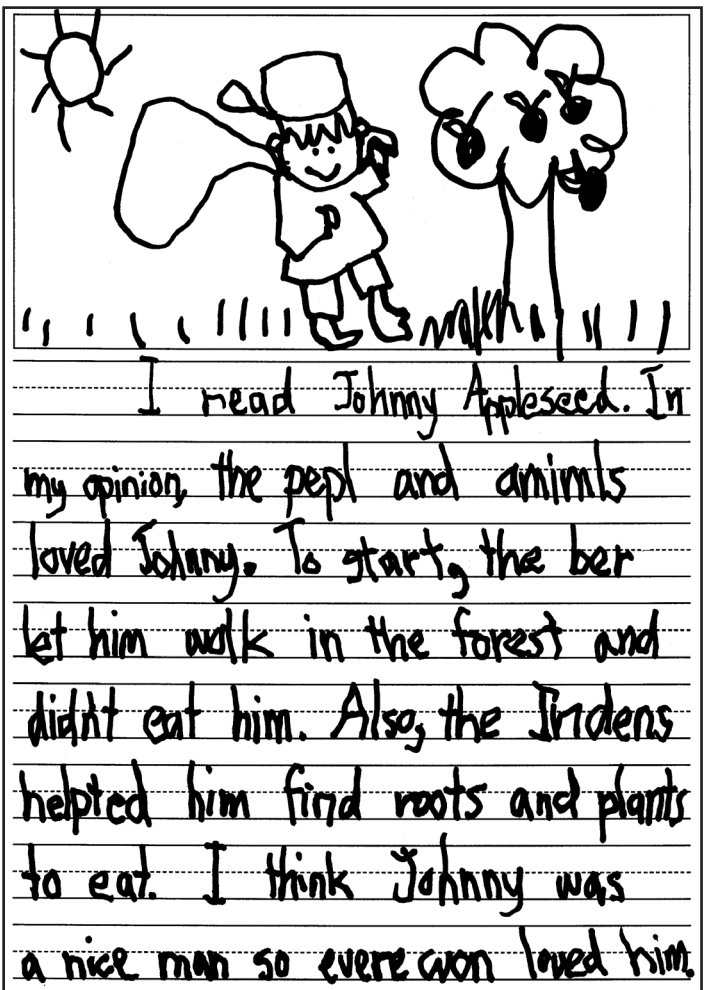 I read Johnny Appleseed. In
my opinion, the pepl and amimls
loved Johnny. To start, the ber
let him walk in the forest and
didn't eat him. Also, the Indens
helpted him find roots and plants
to eat. I think Johnny was
a nice man so evere won loved him.